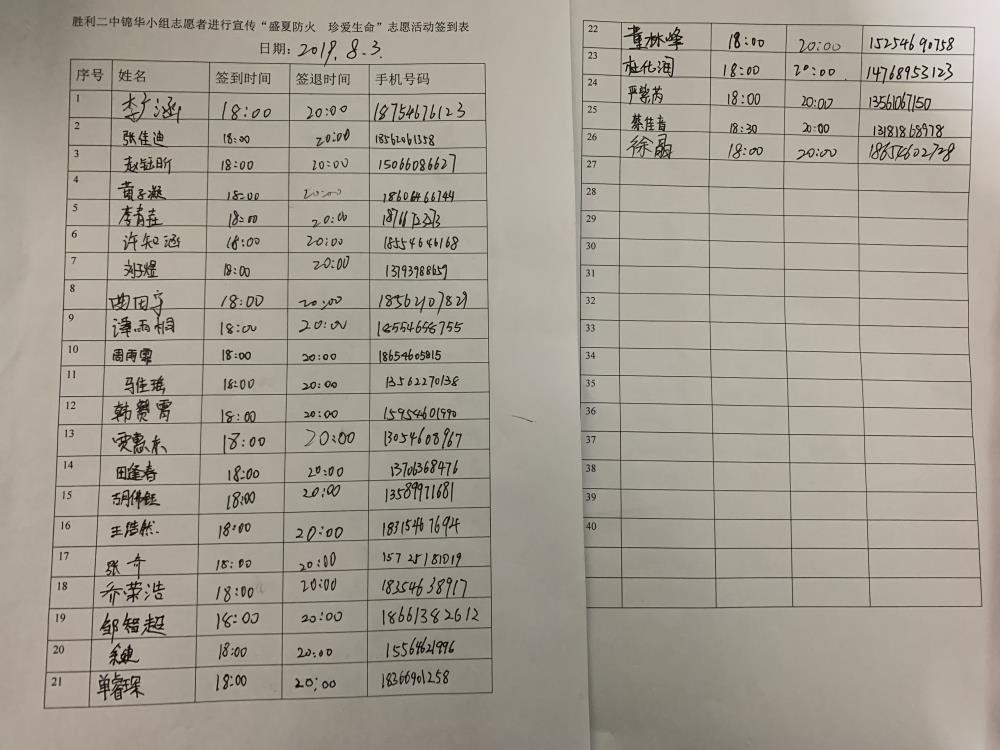 胜利二中锦华小组志愿者进行宣传“盛夏防火 珍爱生命”志愿活动签到表
日期：2019.8.3
序号 姓名 签到时间 签退时间 手机号码
1 李广涵 18:00 20:00 18754676123
2 张佳迪 18:00 20:00 18562061358
3 赵钰昕 18:00 20:00 15066086627
4 黄子凝 18:00 20:00 18604466744
5 李青蓝 18:00 20:00
6 许知涵 18:00 20:00 18554646168
7 刘子煜 18:00 20:00 13793988659
8 曲田宇 18:00 20:00 18562107829
9 谭雨桐 18:00 20:00 18554658755
10 周雨霏 18:00 20:00 18654605815
11 马佳瑶 18:00 20:00 13562270138
12 韩赟霄 18:00 20:00 15954601990
13 贾惠东 18:00 20:00 13054608967
14 田逢春 18:00 20:00 13706368476
15 胡佛钰 18:00 20:00 13589971681
16 王浩然 18:00 20:00 18315467694
17 张奇 18:00 20:00 15725181019
18 乔荣浩 18:00 20:00 18354638917
19 邹智超 18:00 20:00 18661382612
20 18:00 20:00 15564621996
21 单睿琛 18:00 20:00 18366901258
22 董林峰 18:00 20:00 15254690758
23 杜化润 18:00 20:00 14768953123
24 严紫芮 18:00 20:00 13561067150
25 蔡佳音 18:30 20:00 13181868978
26 徐晶 18:00 20:00 18654602728
27
28
29
30
31
32
33
34
35
36
37
38
39
40